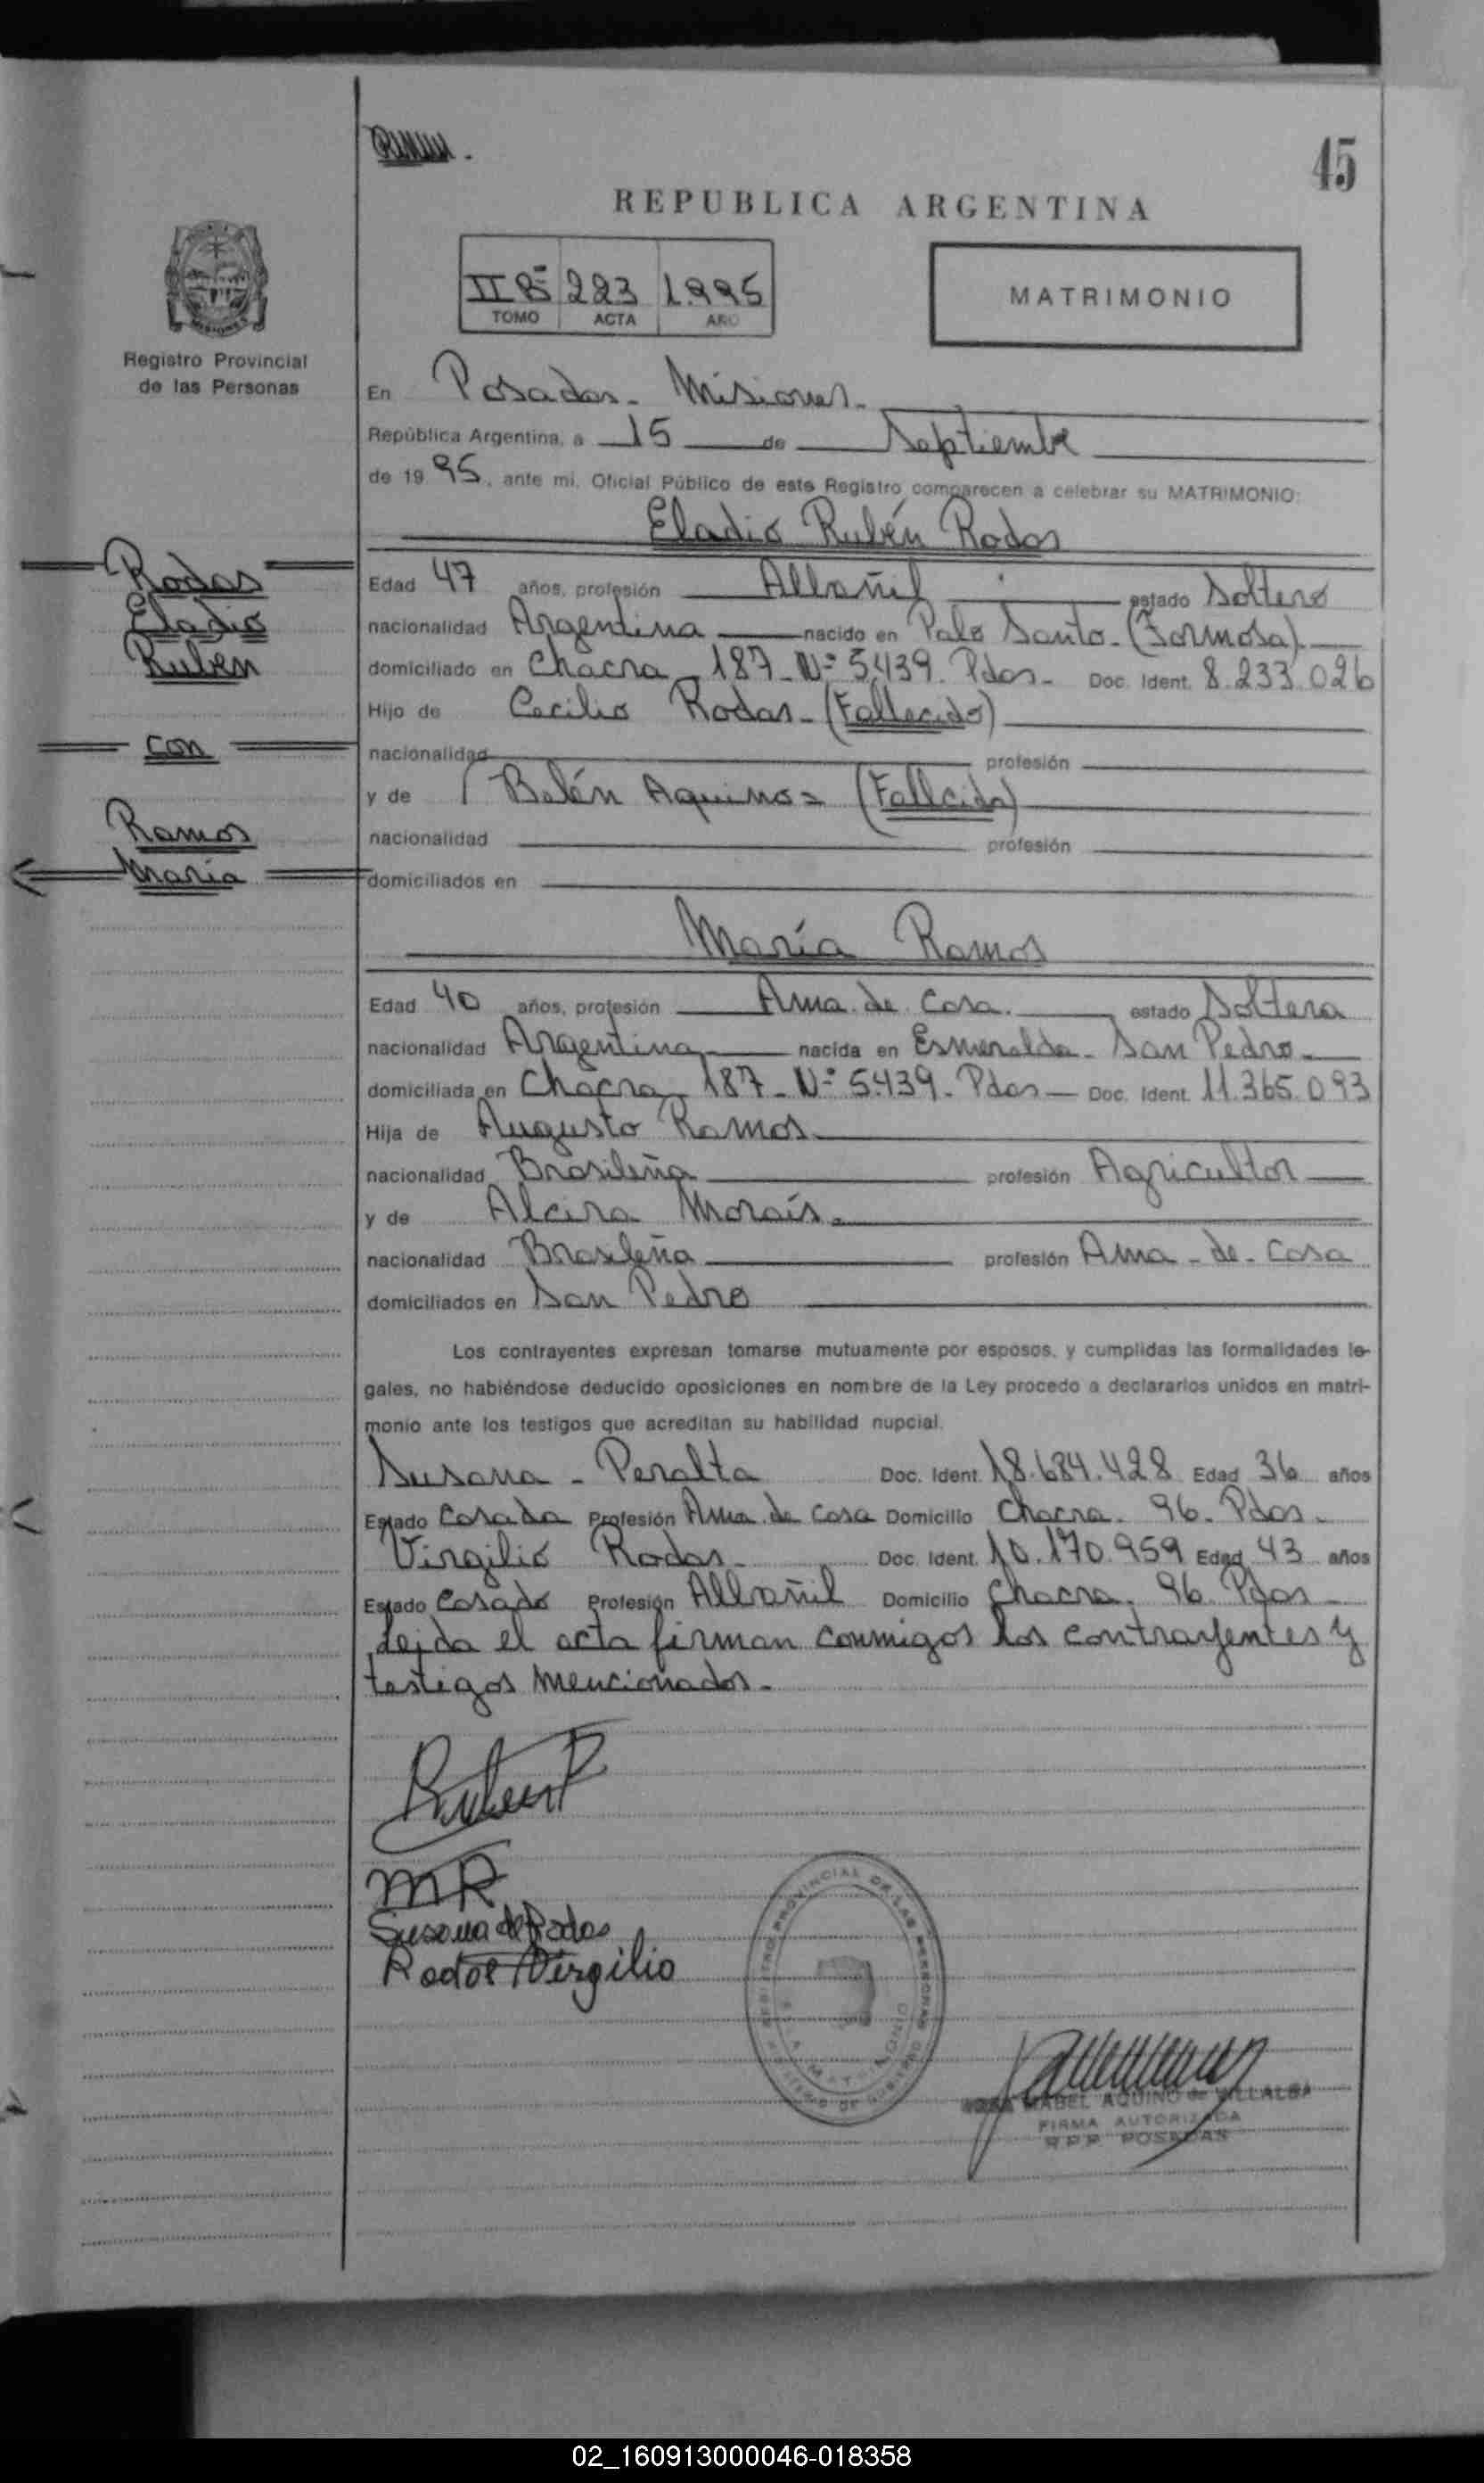 45
REPUBLICA ARGENTINA
II Bº 223 1.995
TOMO ACTA AÑO
MATRIMONIO
MISIONES
Registro Provincial
de las Personas
En Posadas - Misiones -
República Argentina, a 15 de Septiembre
de 19 95, ante mi, Oficial Público de este Registro comparecen a celebrar su MATRIMONIO:
Eladio Rubén Rodas
Rodas
Eladio
Rubén
con
Ramos
María
Edad 47 años, profesión Albañil estado Soltero
nacionalidad Argentina nacido en Palo Santo - (Formosa).
domiciliado en Chacra 187 - Nº 5.439. Pdas - Doc. Ident. 8.233.026
Hijo de Cecilio Rodas - (Fallecido)
nacionalidad profesión
y de Belén Aquino = (Fallcida)
nacionalidad profesión
domiciliados en
María Ramos
Edad 40 años, profesión Ama de Casa. estado Soltera
nacionalidad Argentina nacida en Esmeralda - San Pedro -
domiciliada en Chacra 187 - Nº 5439 - Pdas - Doc. Ident. 11.365.093
Hija de Augusto Ramos
nacionalidad Brasileña profesión Agricultor
y de Alcira Morais.
nacionalidad Brasileña profesión Ama - de - Casa
domiciliados en San Pedro
Los contrayentes expresan tomarse mutuamente por esposos, y cumplidas las formalidades le-
gales, no habiéndose deducido oposiciones en nombre de la Ley procedo a declararlos unidos en matri-
monio ante los testigos que acreditan su habilidad nupcial.
Susana - Peralta Doc. Ident. 18.684.428 Edad 36 años
Estado Casada Profesión Ama de Casa Domicilio Chacra. 96. Pdas.
Virgilio Rodas - Doc. Ident. 10.170.959 Edad 43 años
Estado Casado Profesión Albañil Domicilio Chacra. 96. Pdas
Leida el acta firman conmigos los contrayentes y
testigos mencionados.
Ruben R
MR
Susana de Rodas
Rodas Virgilio
REGISTRO PROVINCIAL DE LAS PERSONAS
MABEL AQUINO de VILLALBA
FIRMA AUTORIZADA
R.P.P. POSADAS
02_160913000046-018358